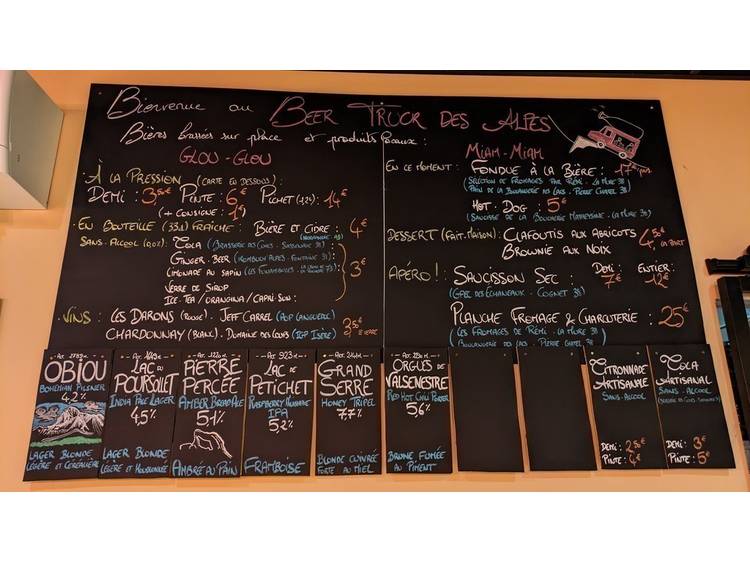 Bienvenue au Beer Truck des Alpes
Bières brassées sur place et produits locaux :
GLOU-GLOU
À LA PRESSION (CARTE EN DESSOUS) :
DEMI : 3,50€ PINTE : 6€ PICHET (1,2L) : 14€
(+ CONSIGNE : 1€)
EN BOUTEILLE (33cl) FRAÎCHE : BIÈRE ET CIDRE : 4€
SANS-ALCOOL (0,0%) : COLA
GINGER-BEER
LIMONADE AU SAPIN
3€
VERRE DE SIROP
ICE-TEA / ORANGINA / CAPRI-SUN :
VINS : LES DARONS (ROUGE). JEFF CARREL (AOP LANGUEDOC)
CHARDONNAY (BLANC). (IGP ISÈRE) 3,50€
MIAM-MIAM
EN CE MOMENT : FONDUE À LA BIÈRE : 17€
(SÉLECTION DE FROMAGES PAR RÉMI - LA MURE 38
PAIN DE LA BOULANGERIE DES LACS - PIERRE CHATEL 38)
HOT-DOG 5€
(SAUCISSE DE LA BOUCHERIE MATHEYSINE - LA MURE 38)
DESSERT (FAIT MAISON) : CLAFOUTIS AUX ABRICOTS
BROWNIE AUX NOIX
4,50€ LA PART
APÉRO ! : SAUCISSON SEC : DEMI : 7€ ENTIER : 12€
(GAEC DES ÉCHANEAUX - COGNET 38)
PLANCHE FROMAGE & CHARCUTERIE : 25€
(LES FROMAGES DE RÉMI - LA MURE 38
BOULANGERIE DES LACS - PIERRE CHATEL 38)
OBIOU
BOHEMIAN PILSNER
4,2%
LAGER BLONDE
LÉGÈRE ET CÉRÉALIÈRE
LAC DU
POURSOLLET
INDIA PALE LAGER
4,5%
LAGER BLONDE
LÉGÈRE ET HOUBLONNÉE
PIERRE
PERCÉE
AMBER BREAD ALE
5,1%
AMBRÉE AU PAIN
ALT. 923m
LAC DE
PETICHET
IPA
5,2%
FRAMBOISE
GRAND
SERRE
HONEY TRIPEL
7,7%
BLONDE CUIVRÉE
FORTE AU MIEL
ORGUES DE
VALSENESTRE
RED HOT CHILI PORTER
5,6%
BRUNE FUMÉE
AU PIMENT
CITRONNADE
ARTISANALE
SANS-ALCOOL
DEMI : 2,50€
PINTE : 4€
COLA
ARTISANAL
SANS-ALCOOL
DEMI : 3€
PINTE : 5€